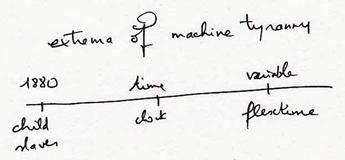 extrema of machine tyranny
1880 time variable
child clock flextime
slaves